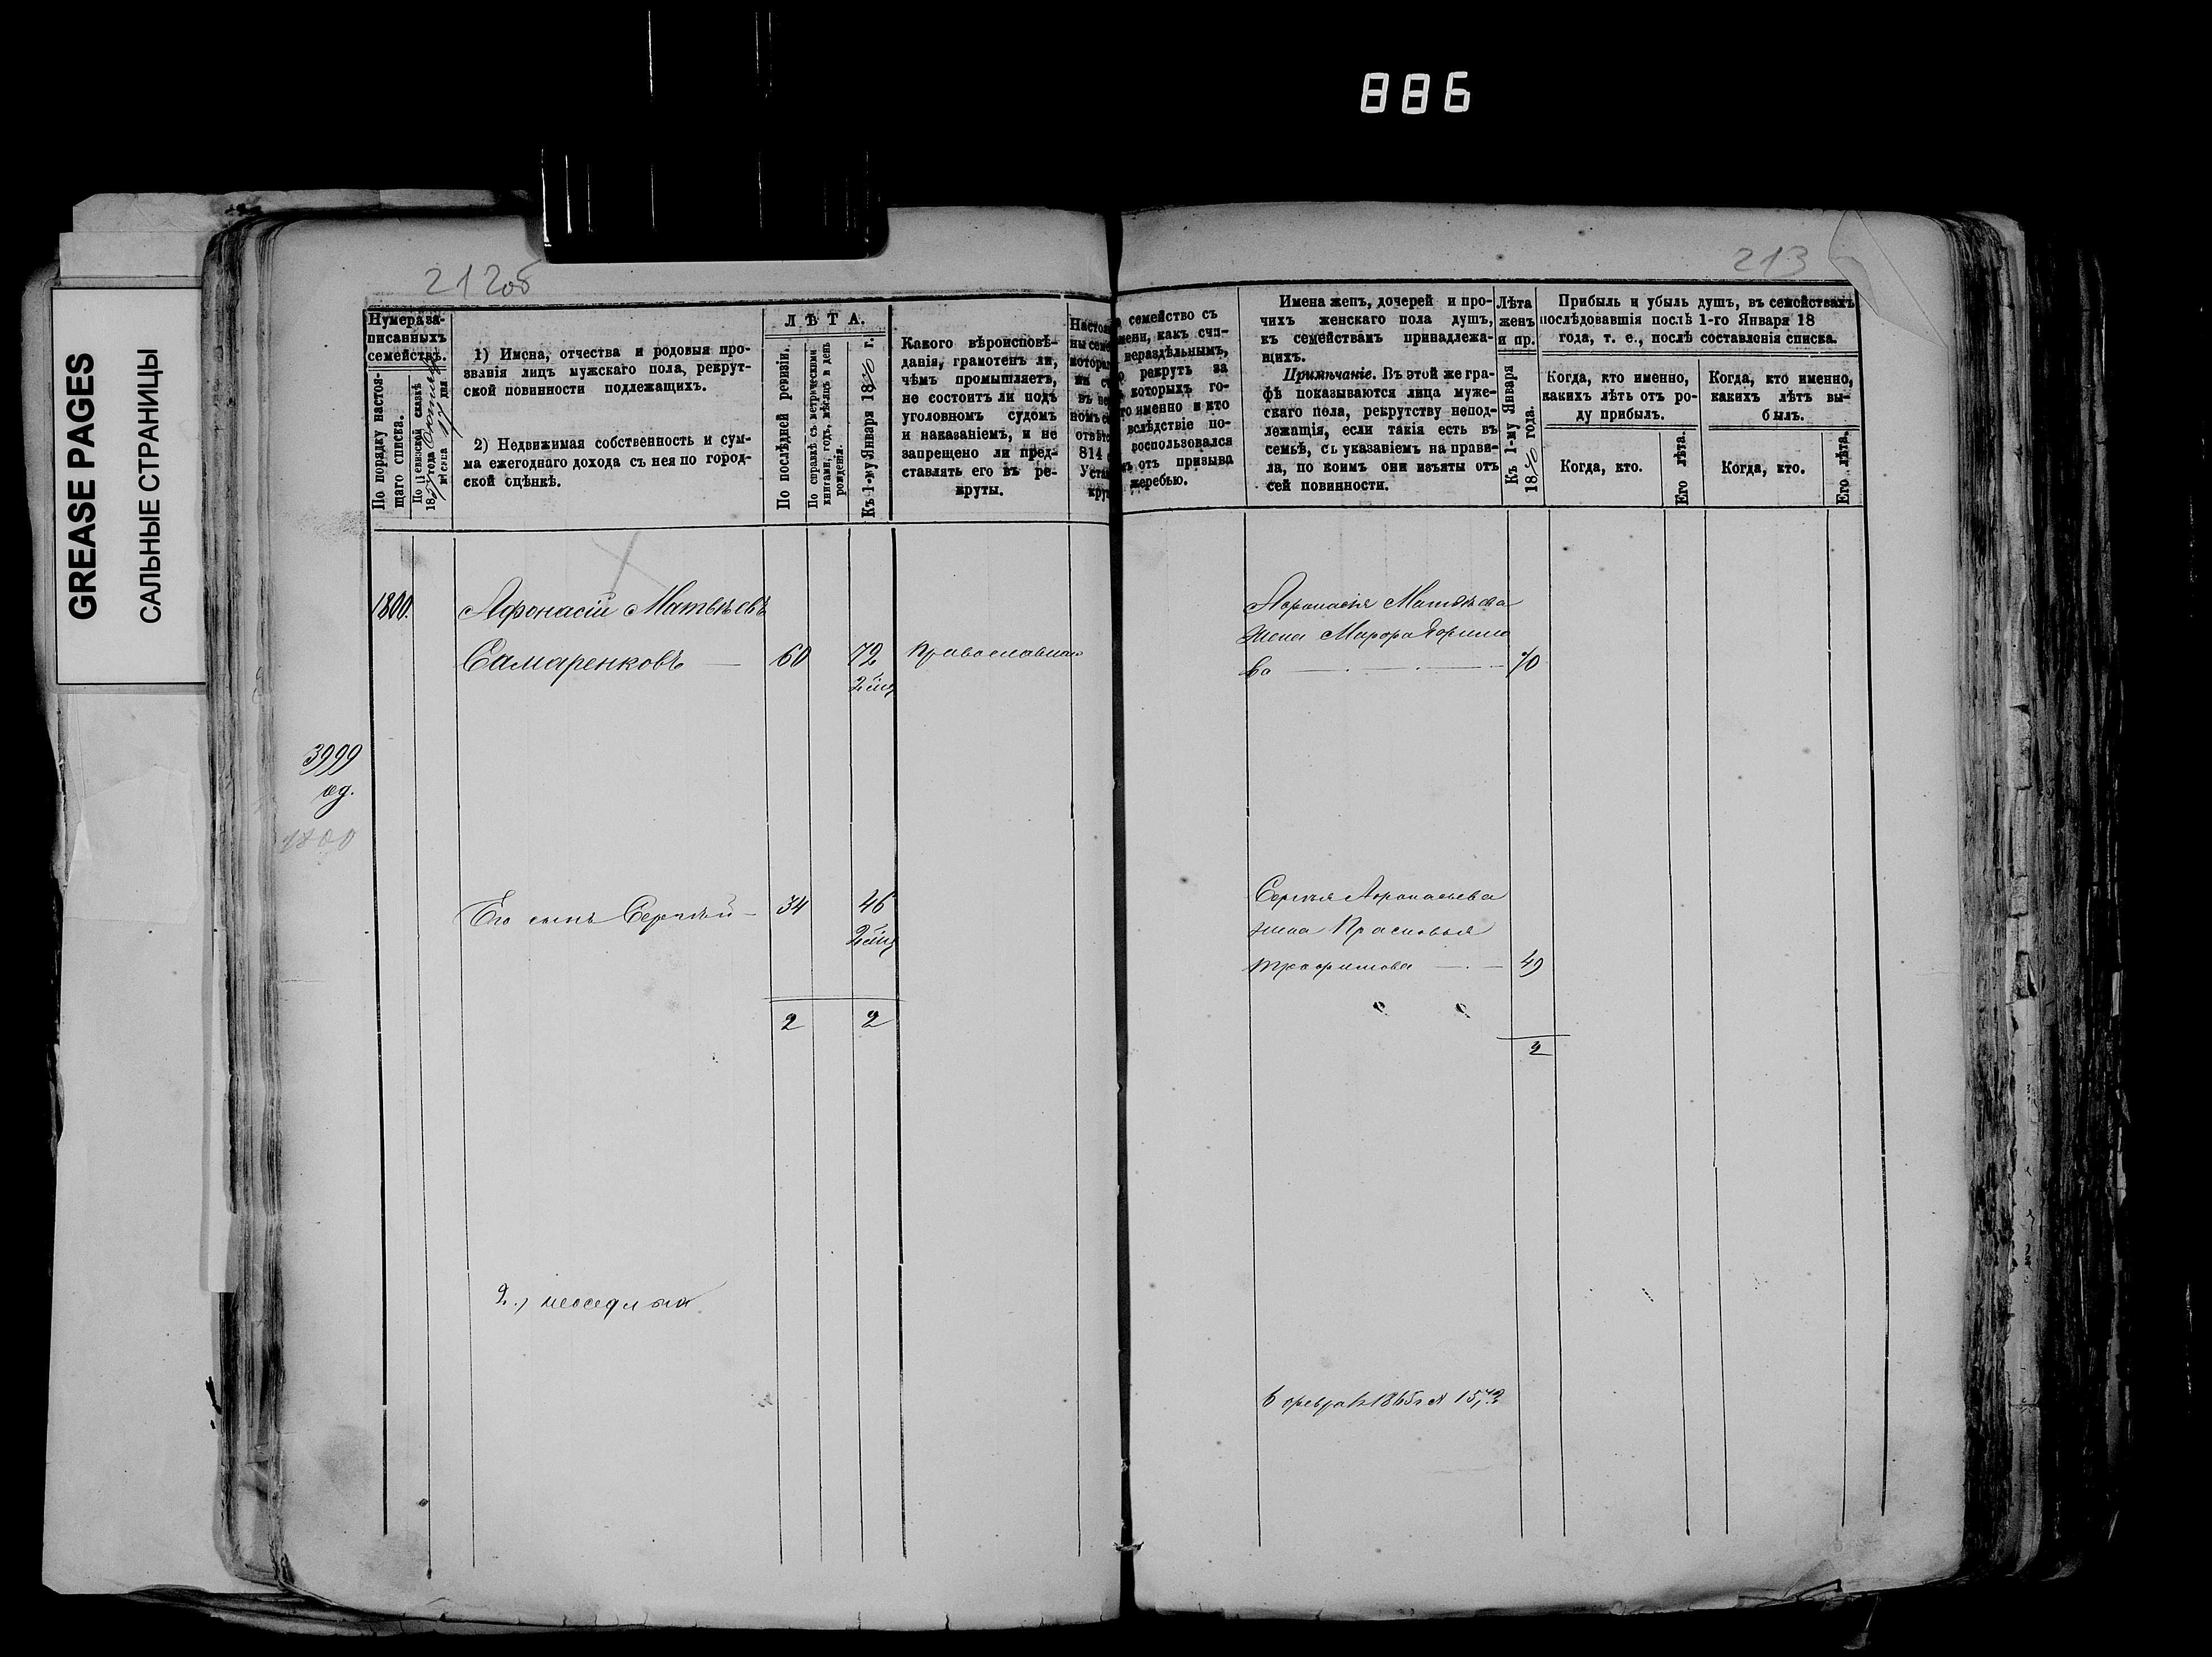 886
GREASE PAGES
САЛЬНЫЕ СТРАНИЦЫ
212об
Нумера за-
писанныхъ
семействъ.
По порядку настоя-
щаго списка.
По ревизской сказкѣ
1) Имена, отчества и родовыя про-
званія лицъ мужскаго пола, рекрут-
ской повинности подлежащихъ.
2) Недвижимая собственность и сум-
ма ежегоднаго дохода съ нея по город-
ской оцѣнкѣ.
ЛѢТА.
По послѣдней ревизіи.
По справкѣ съ метрическими
книгами, годъ, мѣсяцъ и день
рожденія.
Къ 1-му Января 1870 г.
Какого вѣроисповѣ-
данія, грамотенъ ли,
чѣмъ промышляетъ,
не состоитъ ли подъ
уголовномъ судомъ
и наказаніемъ, и не
запрещено ли пред-
ставлять его въ ре-
круты.
1800.
Афонасій Матвѣевъ
Самаренковъ — 60 72 православнаго
3999
од.
1800
Его сынъ Сергѣй — 34 46
2 2
2.) неоседлыя
213
семейство съ
мени, какъ счи-
нераздѣльнымъ,
рекрутъ за
которыхъ го-
то именно и кто
вслѣдствіе по-
воспользовался
отъ призыва
жеребью.
Имена женъ, дочерей и про-
чихъ женскаго пола душъ,
къ семействамъ принадлежа-
щихъ.
Примѣчаніе. Въ этой же гра-
фѣ показываются лица муже-
скаго пола, рекрутству непод-
лежащія, если такія есть въ
семьѣ, съ указаніемъ на прави-
ла, по коимъ они изъяты отъ
сей повинности.
Лѣта
женъ
и пр.
Къ 1-му Января
1870 года.
Прибыль и убыль душъ, въ семействахъ
послѣдовавшія послѣ 1-го Января 18
года, т. е., послѣ составленія списка.
Когда, кто именно,
какихъ лѣтъ отъ ро-
ду прибылъ.
Когда, кто.
Его лѣта.
Когда, кто именно,
какихъ лѣтъ вы-
былъ.
Когда, кто.
Его лѣта.
Афонасія Матвѣева
жена Марфа Ефимо
ва — 70
Сергѣя Афонасьева
жена Прасковья
Трофимова — 49
2